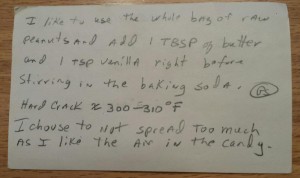 I like to use the whole bag of raw
peanuts and add 1 TBSP of butter
and 1 tsp vanilla right before
stirring in the baking soda.
Hard Crack ≈ 300-310°F
I chouse to not spread too much
As I like the Air in the candy.